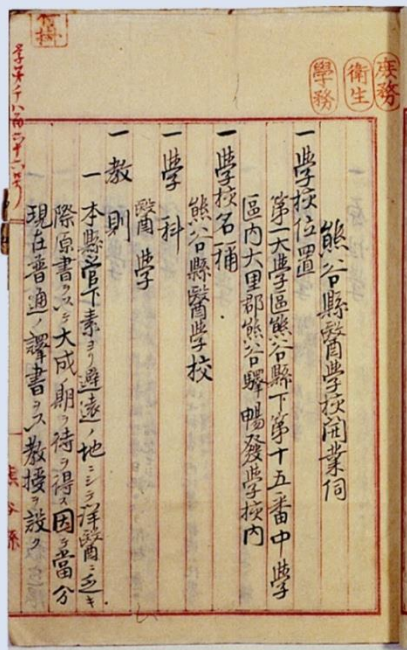 庶務
衛生
學務
熊谷縣醫學校開業伺
一學校位置
第一大學區熊谷縣下第十五番中學
區内大里郡熊谷驛暢發學校内
一學校名稱
熊谷縣醫學校
一學科
醫學
一教則
一本縣管下素ヨリ避遠ノ地ニシテ洋醫ニ乏キ
際原書ヲ以テ大成ノ期ヲ待ヲ得ス因テ當分
現在普通ノ譯書ヲ以テ教授ヲ設ク
熊谷縣